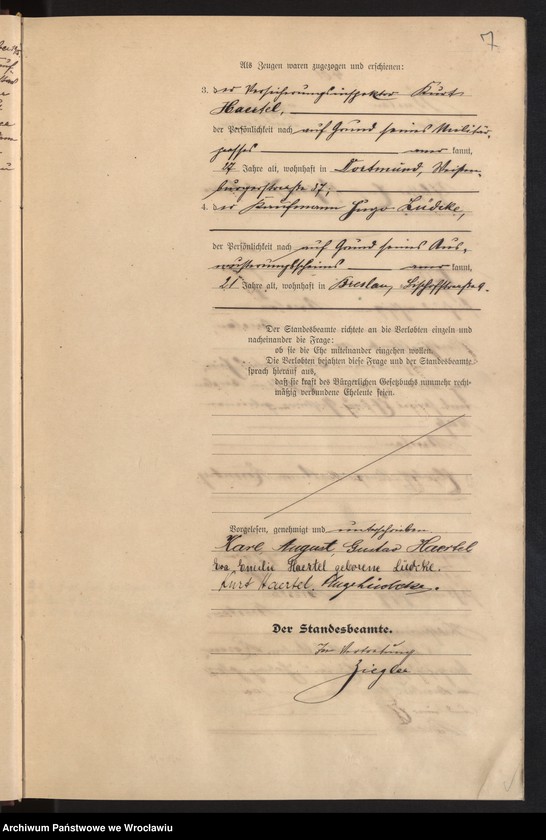 7
Als Zeugen waren zugezogen und erschienen:
3. der Versicherungsinspektor Kurt
Haertel,
der Persönlichkeit nach auf Grund seines Militär-
passes kannt,
27 Jahre alt, wohnhaft in Dortmund, Weißen-
burgerstraße 37;
4. der Kaufmann Hugo Lüdcke,
der Persönlichkeit nach auf Grund seines Aus-
musterungsscheins kannt,
21 Jahre alt, wohnhaft in Breslau, Bischofstraße 9.
Der Standesbeamte richtete an die Verlobten einzeln und
nacheinander die Frage:
ob sie die Ehe miteinander eingehen wollen.
Die Verlobten bejahten diese Frage und der Standesbeamte
sprach hierauf aus,
daß sie kraft des Bürgerlichen Gesetzbuchs nunmehr recht-
mäßig verbundene Eheleute seien.
Vorgelesen, genehmigt und unterschrieben
Karl, August, Gustav Haertel
Eva Emilie Haertel geborene Lüdcke.
Kurt Haertel. Hugo Luedcke.
Der Standesbeamte.
In Vertretung
Ziegler
Archiwum Państwowe we Wrocławiu